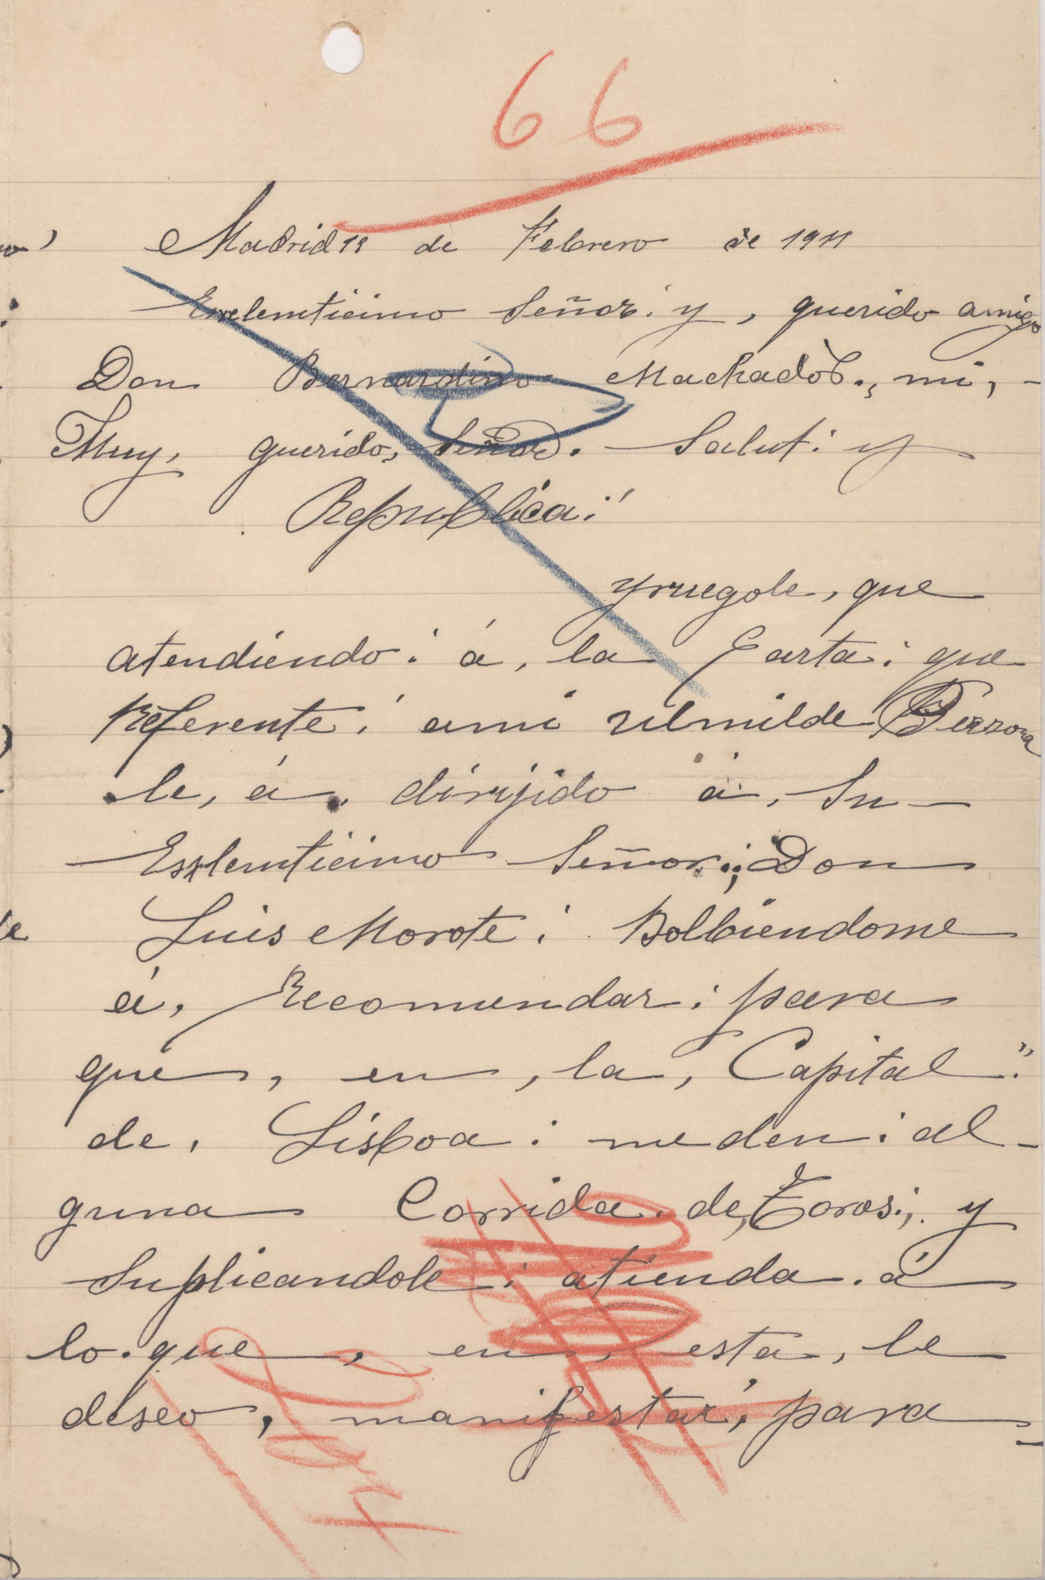 66
Madrid 19 de Febrero de 1911
Exelenticimo Señor: y, querido amigo
Don Bernardino Machadò., mi, -
Muy, querido, Señor. - Salut: y
Republica:
y ruegole, que
atendiendo: á, la Carta: que
Referente: ami umilde Persona
le, á, dirijido á, Su -
Exelenticimo Señor:; Don
Luis Morote: Bolbiendome
á, Recomendar: para
que, en, la, Capital:"
de, Lisboa: me den: al-
guna Corrida. de, Toros:, y
Suplicandole: atienda. á
lo. que, en, esta, le
deseo, manifestar, para -